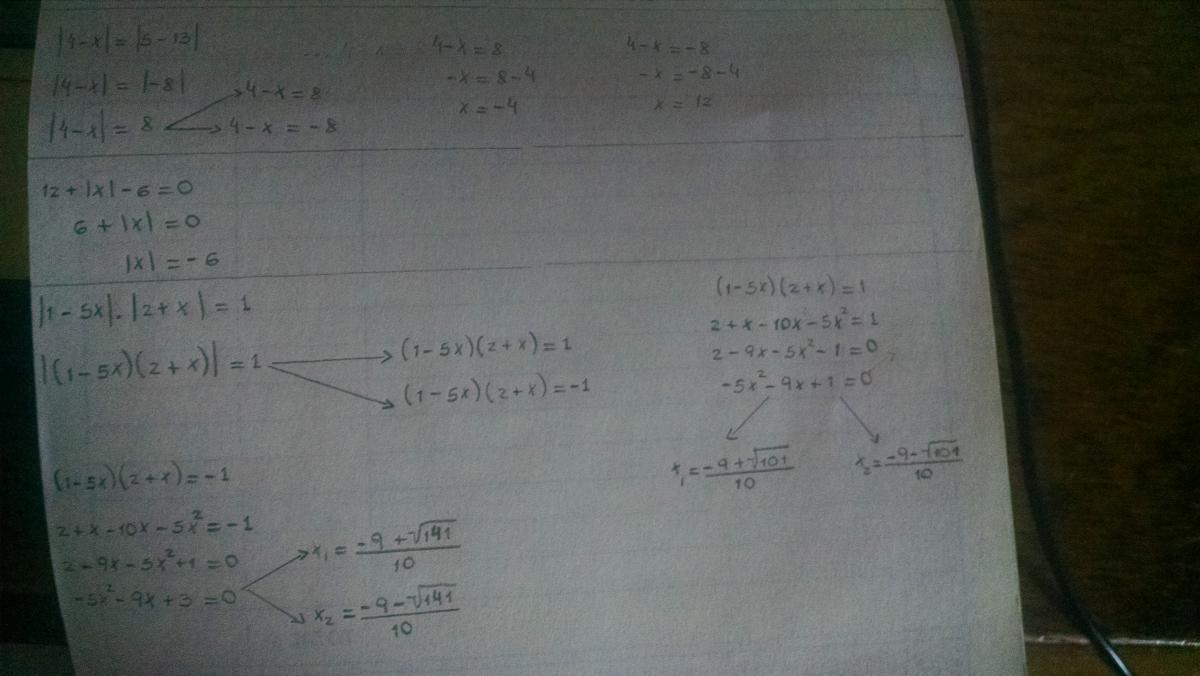 |4-x| = |5-13|
|4-x| = |-8|
|4-x| = 8
4-x = 8
4-x = -8
4-x = 8
-x = 8-4
x = -4
4-x = -8
-x = -8-4
x = 12
12 + |x| - 6 = 0
6 + |x| = 0
|x| = -6
|1-5x| . |2+x| = 1
|(1-5x)(2+x)| = 1
(1-5x)(2+x) = 1
(1-5x)(2+x) = -1
(1-5x)(2+x) = 1
2+x-10x-5x² = 1
2-9x-5x²-1 = 0
-5x²-9x+1 = 0
x₁ = (-9+√101)/10
x₂ = (-9-√101)/10
(1-5x)(2+x) = -1
2+x-10x-5x² = -1
2-9x-5x²+1 = 0
-5x²-9x+3 = 0
x₁ = (-9+√141)/10
x₂ = (-9-√141)/10